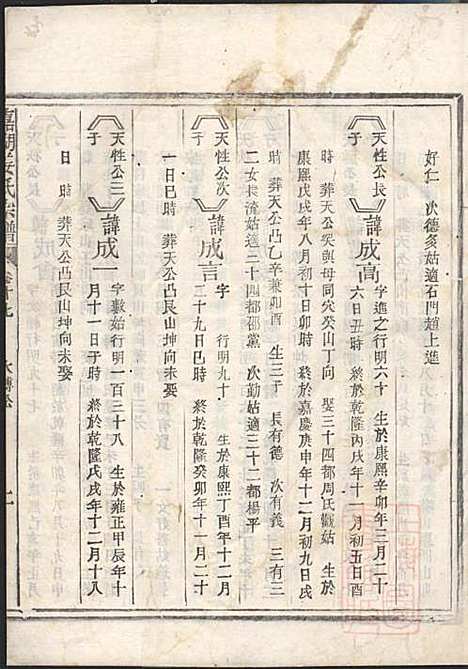 好仁 次德多姑適石門趙上進
天性公長子
諱成高
字進之行明六十 生於康熙辛卯年三月二十
六日丑時 終於乾隆丙戌年十一月初五日酉
時 葬天公癸與母同穴癸山丁向 娶三十四都周氏觀姑 生於
康熙戊戌年八月初十日卯時 終於嘉慶庚申年十二月初九日戌
時 葬天公凸乙辛兼卯酉 生三子 長有德 次有義 三有三
二女長濟姑適二十四都邵黨 次勤姑適三十二都楊平
天性公次子
諱成言
字 行明九十 生於康熙丁酉年十二月
二十九日巳時 終於乾隆癸卯年十一月二十
一日巳時 葬天公凸艮山坤向未娶
天性公三子
諱成一
字數始行明一百三十八 生於雍正甲辰年十
月十一日子時 終於乾隆戊戌年十二月十八
日 時 葬天公凸艮山坤向未娶
姜氏宗譜